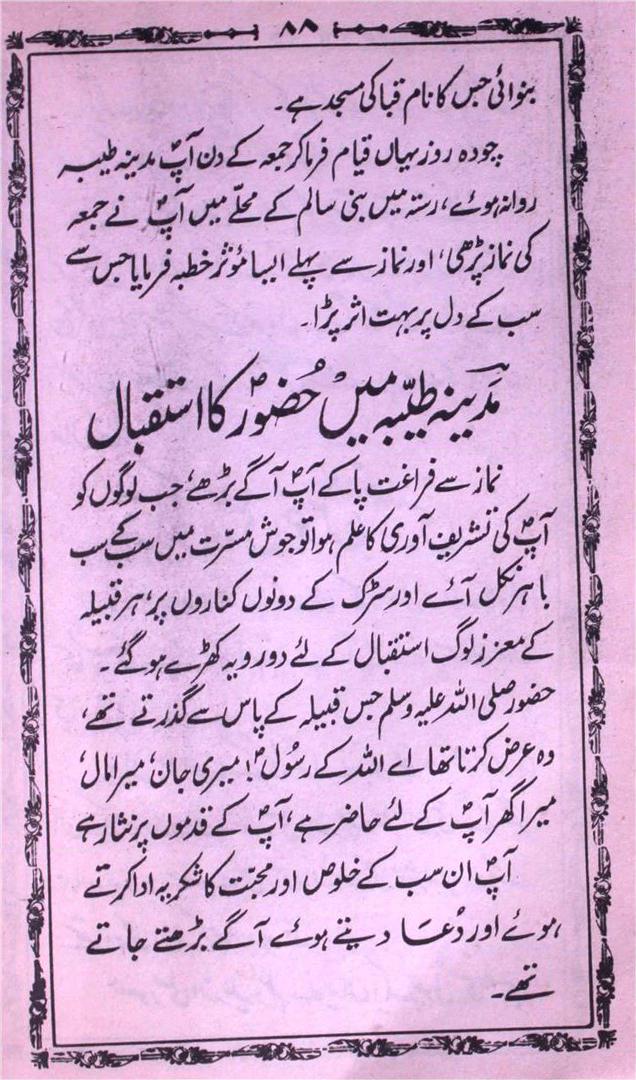 ۸۸
بنوائی جس کا نام قبا کی مسجد ہے۔
چودہ روز یہاں قیام فرما کر جمعہ کے دن آپؐ مدینہ طیبہ
روانہ ہوئے، رستہ میں بنی سالم کے محلّے میں آپؐ نے جمعہ
کی نماز پڑھی، اور نماز سے پہلے ایسا مؤثر خطبہ فرمایا جس سے
سب کے دل پر بہت اثر پڑا۔
مَدینہ طیّبہ میں حُضورؐ کا استقبال
نماز سے فراغت پا کے آپؐ آگے بڑھے، جب لوگوں کو
آپؐ کی تشریف آوری کا علم ہوا تو جوش مسرّت میں سب کے سب
باہر نکل آئے اور سڑک کے دونوں کناروں پر، ہر قبیلہ
کے معزز لوگ استقبال کے لئے دو رویہ کھڑے ہو گئے۔
حضور صلی اللہ علیہ وسلم جس قبیلہ کے پاس سے گذرتے تھے،
وہ عرض کرتا تھا اے اللہ کے رسُولؐ! میری جان، میرا مال،
میرا گھر آپؐ کے لئے حاضر ہے، آپؐ کے قدموں پر نثار ہے
آپؐ ان سب کے خلوص اور محبّت کا شکریہ ادا کرتے
ہوئے اور دُعا دیتے ہوئے آگے بڑھتے جاتے
تھے۔